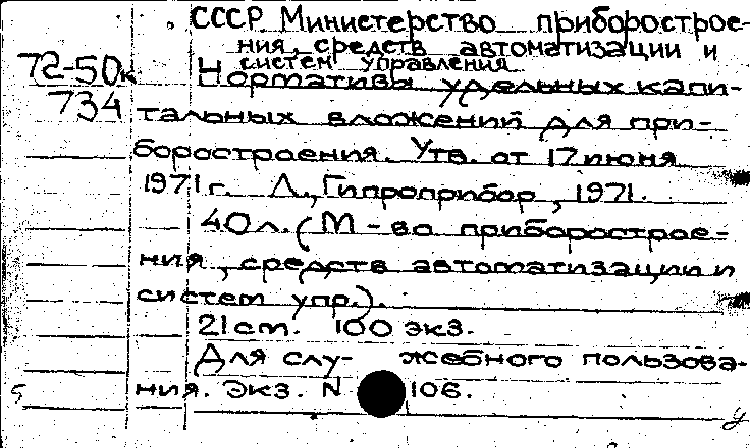 СССР Министерство приборострое-
ния, средств автоматизации и
систем управления
72-50к
734
Нормативы удельных капи-
тальных вложений для при-
боростроения. Утв. от 17 июня
1971 г. Л., Гипроприбор, 1971.
40 л. (М-во приборострое-
ния, средств автоматизации и
систем упр.).
21 см. 100 экз.
Для слу- жебного пользова-
ния. Экз. N 106.
у